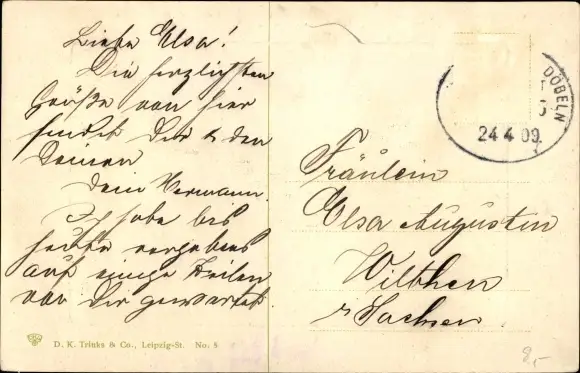 Liebe Elsa!
Die herzlichsten
Grüße von hier
sendet Dir & den
Deinen
Dein Hermann.
Ich habe bis
heute vergebens
auf einige Zeilen
von Dir gewartet.
DÖBELN
24 4 09.
Fräulein
Elsa Augustin
Wilthen
Sachsen.
D. K. Trinks & Co., Leipzig-St. No. 8
8,-